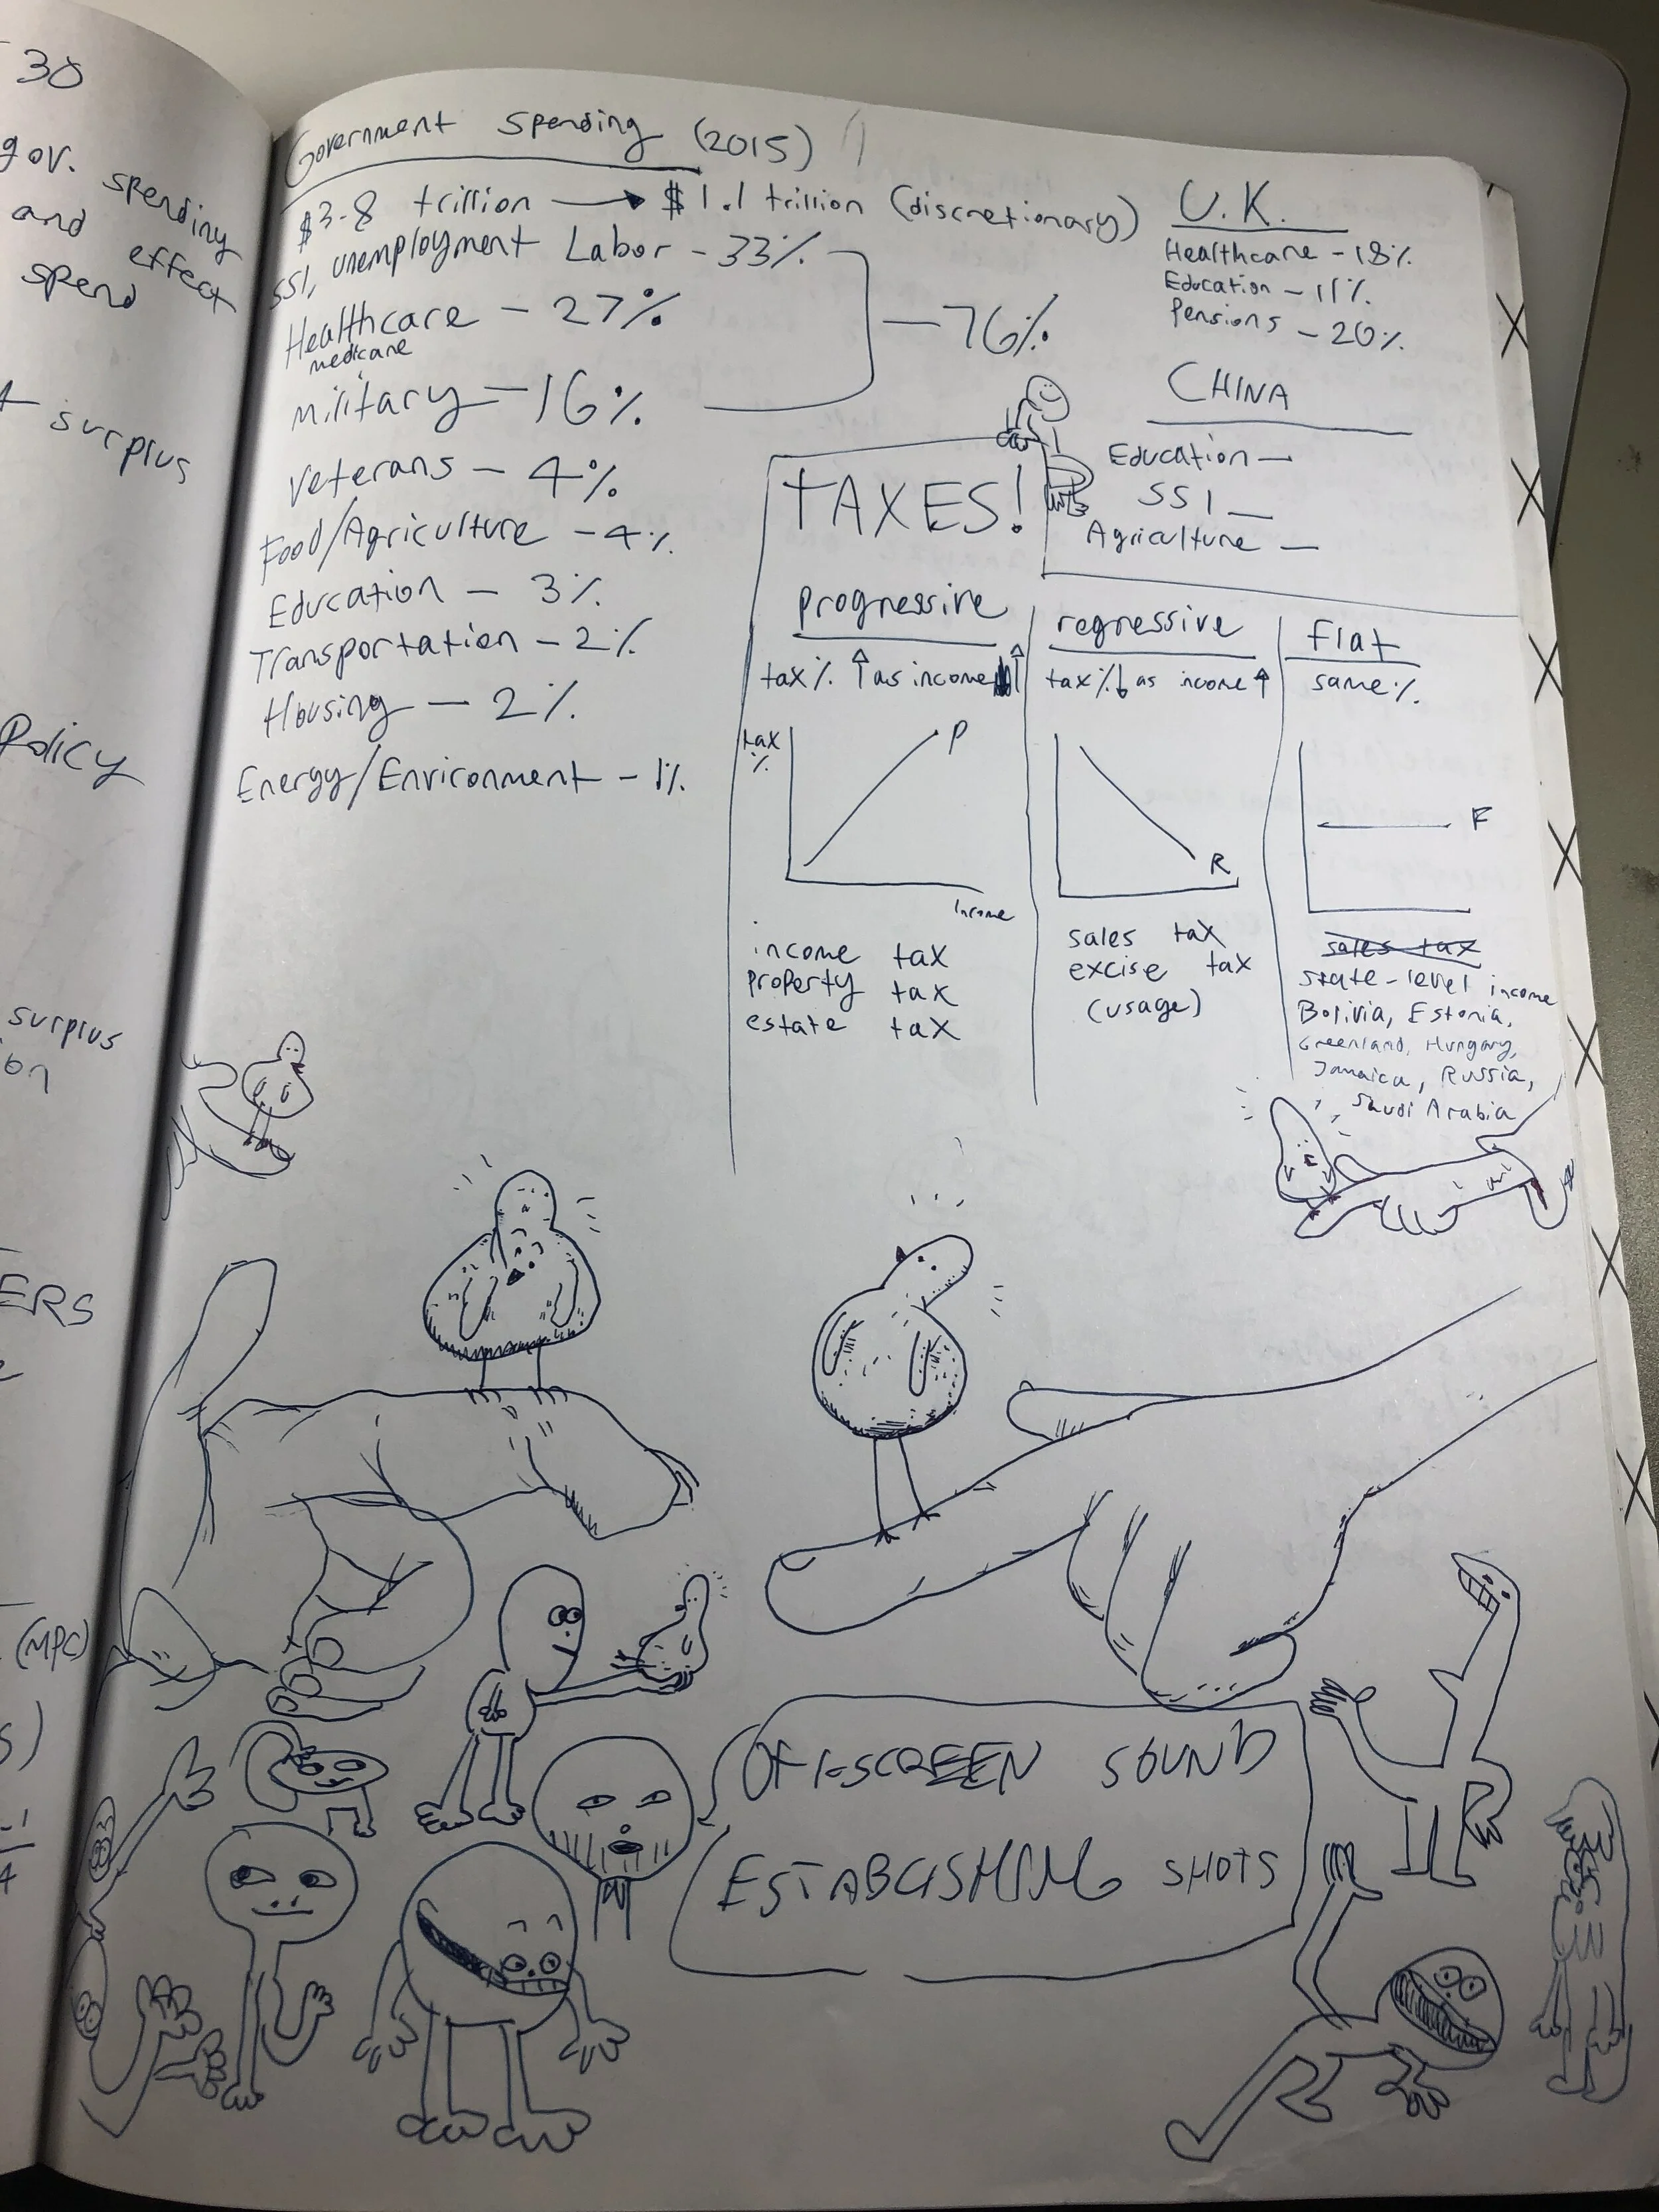 30
gov. spending
and effect
spend
surplus
Policy
surplus
on
ERS
(MPC)
s)
-1
4
Government Spending (2015)
$3.8 trillion → $1.1 trillion (discretionary)
SSI, unemployment Labor - 33%
Healthcare - 27%
medicare
military - 16%
- 76%
Veterans - 4%
Food/Agriculture - 4%
Education - 3%
Transportation - 2%
Housing - 2%
Energy/Environment - 1%
U.K.
Healthcare - 18%
Education - 11%
Pensions - 20%
CHINA
Education -
SSI -
Agriculture -
TAXES!
progressive
tax % ↑ as income ↑
tax
%
P
income
income tax
property tax
estate tax
regressive
tax % ↓ as income ↑
R
sales tax
excise tax
(usage)
flat
same %
F
sales tax
state-level income
Bolivia, Estonia,
Greenland, Hungary,
Jamaica, Russia,
Saudi Arabia
OFF-SCREEN SOUND
ESTABLISHING SHOTS